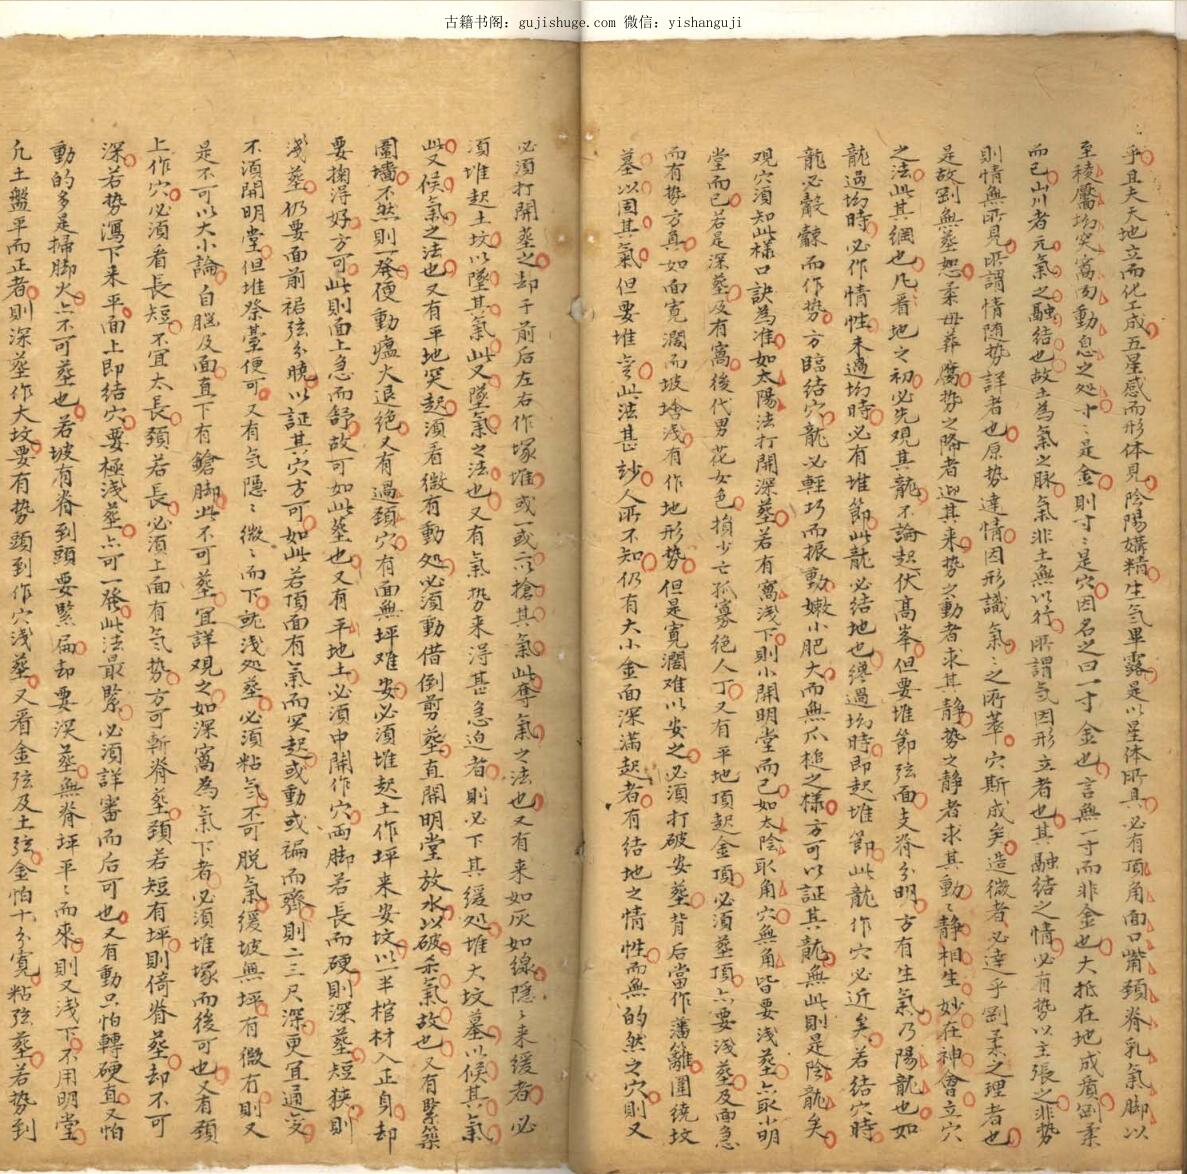 古籍书阁：gujishuge.com 微信：yishanguji
乎且夫天地立而化工成五星感而形体見陰陽媾精生气畢露是以星体所具必有頂角面口嘴頸脊乳氣脚以
至稜靨坳突窩面動息之处寸〻是金則寸〻是穴因名之曰一寸金也言無一寸而非金也大抵在地成質剛柔
而已山川者元氣之融結也故土為氣之脉氣非土無以行所謂气因形立者也其融結之情必有势以主張之非势
則情無所見所謂情随势詳者也原势達情因形識氣〻之所萃穴斯成矣造微者必達乎剛柔之理者也
是故剛無塟恕柔毋葬靨势之降者迎其来势之動者求其静势之静者求其動〻静相生妙在神會立穴
之法此其綱也凡看地之初必先观其龍不論起伏高峯但要堆節弦面支脊分明方有生氣乃陽龍也如
龍過坳時必作情性未過坳時必有堆節此龍必結地也纔過坳時即起堆節此龍作穴必近矣若結穴時
龍必觳觫而作势方臨結穴龍必輕巧而振動嫩小肥大而無爪槌之樣方可以証其龍無此則是陰龍矣
观穴須知此樣口訣為准如太陽法打開深塟若有窩浅下則小開明堂而已如太陰取角穴無角皆要浅塟亦取小明
堂而已若是深塟及有窩後代男花女色損少亡孤寡绝人丁又有平地頂起金頂必須塟頂亦要浅塟及面急
而有势方真如面寛濶而坡塆浅有作地形势但是寛濶难以安之必須打破安塟背后當作藩籬圍绕坟
墓以固其氣但要堆定此法甚玅人所不知仍有大小金面深滿起者有結地之情性而無的然之穴則又
必須打開塟之却于前后左右作塚堆或一或二以搶其氣此奪氣之法也又有来如灰如線隐〻来緩者必
須堆起土坟以墜其氣此又墜氣之法也又有氣势来淂甚急迫者則必下其缓处堆大坟墓以候其氣
此又候气之法也又有平地突起須看微有動処必須動借倒剪塟直開明堂放水以破杀氣故也又有緊築
圍墻不然則一發便動瘟火退绝又有過頸穴有面無坪难安必須堆起土作坪来安坟以一半棺材入正身却
要掬淂好方可此則面上急而舒故可如此塟也又有平地土必須中開作穴两脚若長而硬則深塟短狭則
浅塟仍要面前裙弦分曉以証其穴方可如此若頂面有氣而突起或動或褊而齊則二三尺深更宜通变
不須開明堂但堆祭臺便可又有気隐〻微〻而下就浅処塟必須粘气不可脱氣缓坡無坪有微冇則又
是不可以大小論自脳及面直下有鎗脚此不可塟宜詳观之如深窩為氣下者必須堆塚而後可也又有頸
上作穴必須看長短不宜太長頸若長必須上面有气势方可斬脊塟頸若短有坪則倚脊塟却不可
深若势瀉下来平面上即結穴要極浅塟亦可一發此法最緊必須詳審而后可也又有動只怕轉硬直又怕
動的多是掃脚火亦不可塟也若坡有脊到頭要緊扁却要深塟無脊坪平〻而來則又浅下不用明堂
凢土盤平而正者則深塟作大坟要有势頭到作穴浅塟又看金弦及土弦金怕十分寛粘弦塟若势到